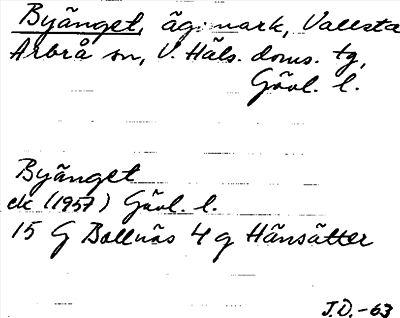 Byänget, ägomark, Vallsta
Arbrå sn, V. Häls. doms. tg,
Gävl. l.
Byänget
ek (1957) Gävl. l.
15 G Bollnäs 4 g Hänsätter
J.D. -63